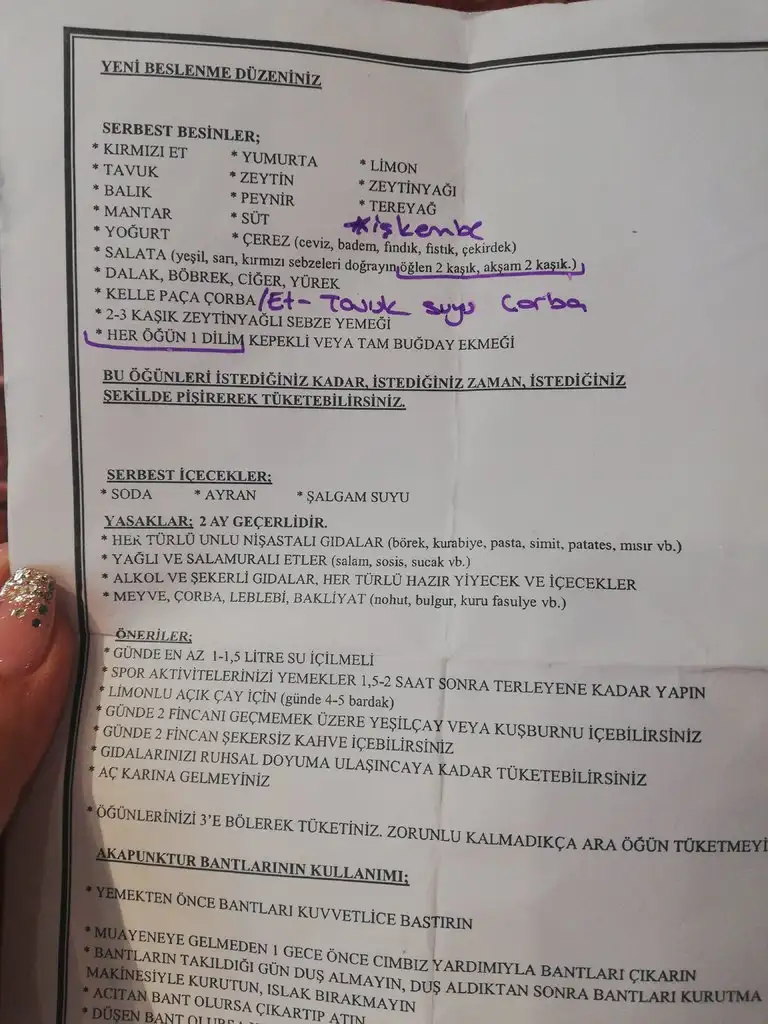 YENİ BESLENME DÜZENİNİZ
SERBEST BESİNLER;
* KIRMIZI ET * YUMURTA * LİMON
* TAVUK * ZEYTİN * ZEYTİNYAĞI
* BALIK * PEYNİR * TEREYAĞ
* MANTAR * SÜT *işkembe
* YOĞURT * ÇEREZ (ceviz, badem, fındık, fıstık, çekirdek)
* SALATA (yeşil, sarı, kırmızı sebzeleri doğrayın öğlen 2 kaşık, akşam 2 kaşık.)
* DALAK, BÖBREK, CİĞER, YÜREK
* KELLE PAÇA ÇORBA /Et- Tavuk suyu Çorba
* 2-3 KAŞIK ZEYTİNYAĞLI SEBZE YEMEĞİ
* HER ÖĞÜN 1 DİLİM KEPEKLİ VEYA TAM BUĞDAY EKMEĞİ
BU ÖĞÜNLERİ İSTEDİĞİNİZ KADAR, İSTEDİĞİNİZ ZAMAN, İSTEDİĞİNİZ
ŞEKİLDE PİŞİREREK TÜKETEBİLİRSİNİZ.
SERBEST İÇECEKLER;
* SODA * AYRAN * ŞALGAM SUYU
YASAKLAR; 2 AY GEÇERLİDİR.
* HER TÜRLÜ UNLU NİŞASTALI GIDALAR (börek, kurabiye, pasta, simit, patates, mısır vb.)
* YAĞLI VE SALAMURALI ETLER (salam, sosis, sucak vb.)
* ALKOL VE ŞEKERLİ GIDALAR, HER TÜRLÜ HAZIR YİYECEK VE İÇECEKLER
* MEYVE, ÇORBA, LEBLEBİ, BAKLİYAT (nohut, bulgur, kuru fasulye vb.)
ÖNERİLER;
* GÜNDE EN AZ 1-1,5 LİTRE SU İÇİLMELİ
* SPOR AKTİVİTELERİNİZİ YEMEKLER 1,5-2 SAAT SONRA TERLEYENE KADAR YAPIN
* LİMONLU AÇIK ÇAY İÇİN (günde 4-5 bardak)
* GÜNDE 2 FİNCANI GEÇMEMEK ÜZERE YEŞİLÇAY VEYA KUŞBURNU İÇEBİLİRSİNİZ
* GÜNDE 2 FİNCAN ŞEKERSİZ KAHVE İÇEBİLİRSİNİZ
* GIDALARINIZI RUHSAL DOYUMA ULAŞINCAYA KADAR TÜKETEBİLİRSİNİZ
* AÇ KARINA GELMEYİNİZ
* ÖĞÜNLERİNİZİ 3'E BÖLEREK TÜKETİNİZ. ZORUNLU KALMADIKÇA ARA ÖĞÜN TÜKETMEYİ
AKAPUNKTUR BANTLARININ KULLANIMI;
* YEMEKTEN ÖNCE BANTLARI KUVVETLİCE BASTIRIN
* MUAYENEYE GELMEDEN 1 GECE ÖNCE CIMBIZ YARDIMIYLA BANTLARI ÇIKARIN
* BANTLARIN TAKILDIĞI GÜN DUŞ ALMAYIN, DUŞ ALDIKTAN SONRA BANTLARI KURUTMA
MAKİNESİYLE KURUTUN, ISLAK BIRAKMAYIN
* ACITAN BANT OLURSA ÇIKARTIP ATIN
* DÜŞEN BANT OLURSA